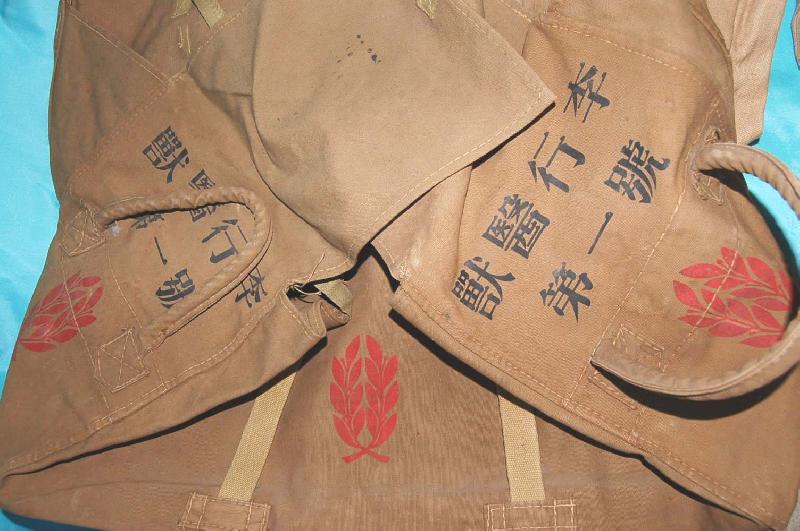 獸醫行李
第一號
獸醫行李
第一號